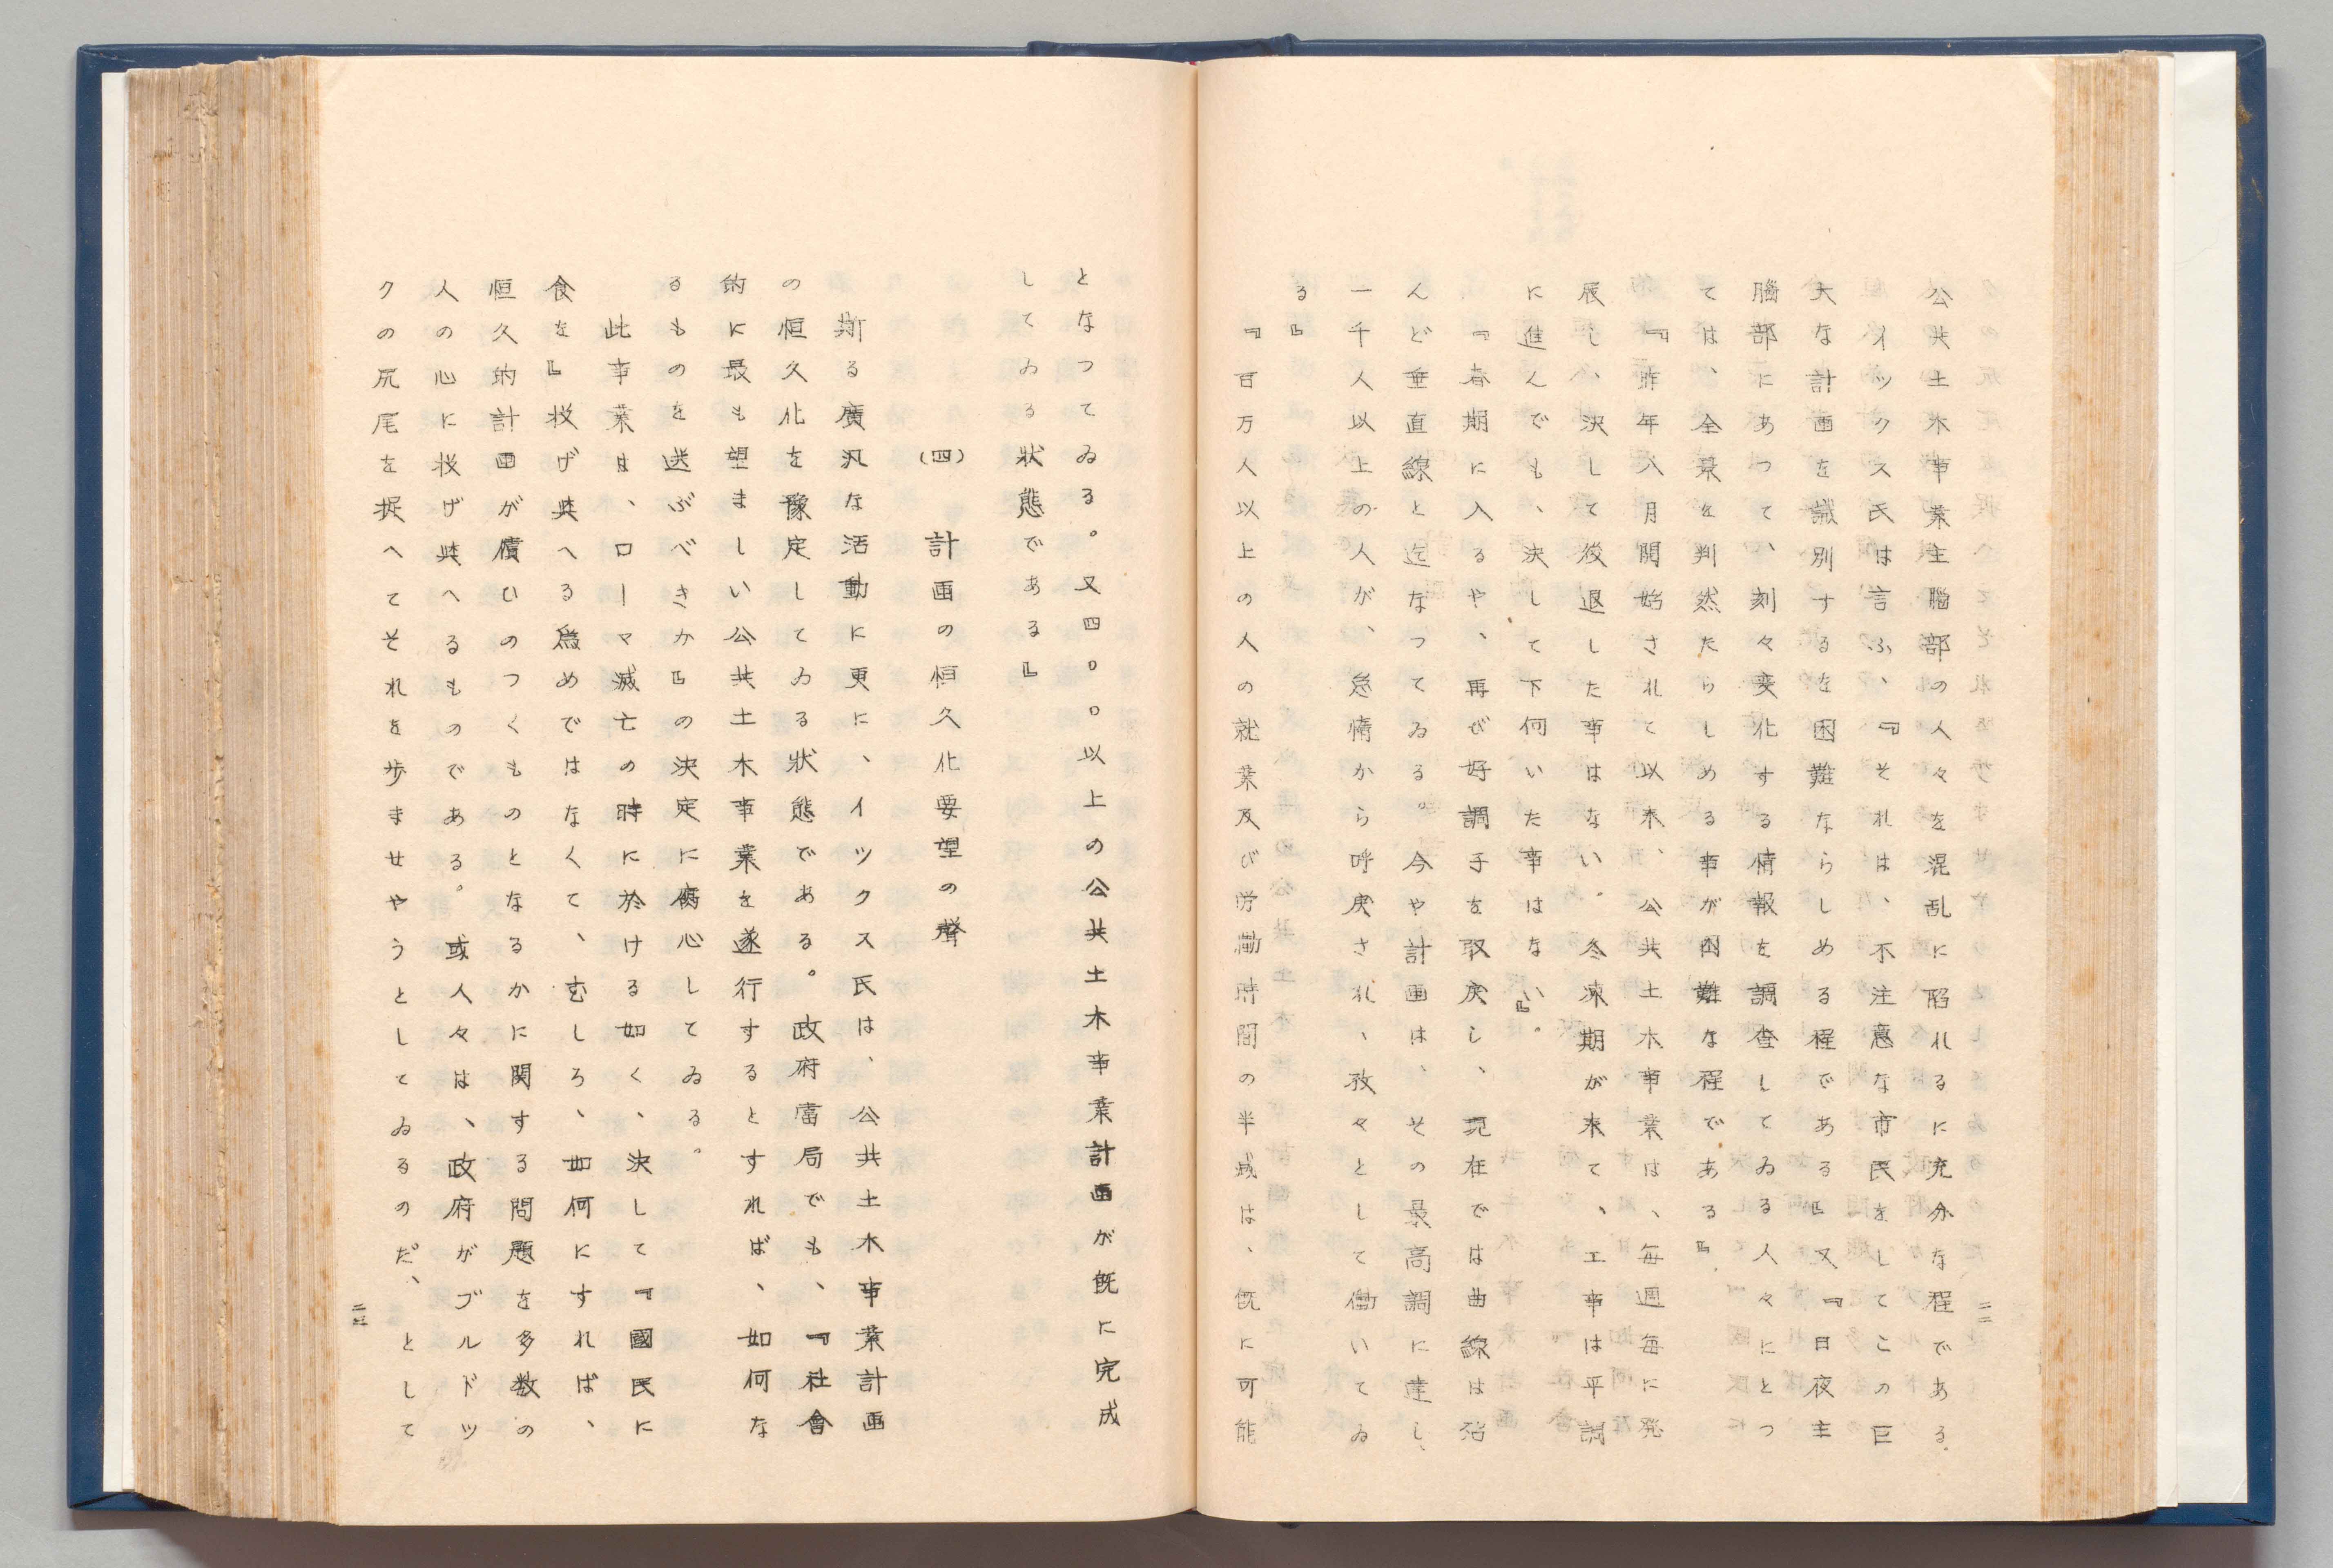 公共土木事業主腦部の人々を混乱に陷れるに充分な程である。
イックス氏は言ふ、『それは、不注意な市民をしてこの巨
大な計画を識別するを困難ならしめる程である』又『日夜主
腦部にあつて、刻々変化する情報を調査してゐる人々にとつ
ては、全景を判然たらしめる事が困難な程である』
『昨年八月開始されて以来、公共土木事業は、毎週毎に発
展し、決して後退した事はない。冬凍期が来て、工事は平調
に進んでも、決して下何いた事はない』。
『春期に入るや、再び好調子を取戻し、現在では曲線は殆
んど垂直線と迄なつてゐる。今や計画は、その最高調に達し、
一千人以上の人が、怠惰から呼戻され、孜々として働いてゐ
る』
『百万人以上の人の就業及び労働時間の半減は、既に可能
二二
となつてゐる。又四〇〇以上の公共土木事業計画が既に完成
してゐる狀態である』
(四) 計画の恒久化要望の聲
斯る廣汎な活動に更に、イックス氏は、公共土木事業計画
の恒久化を豫定してゐる狀態である。政府當局でも、『社會
的に最も望ましい公共土木事業を遂行するとすれば、如何な
るものを選ぶべきか』の決定に腐心してゐる。
此事業は、ローマ滅亡の時に於ける如く、決して『國民に
食を』投げ與へる爲めではなくて、むしろ、如何にすれば、
恒久的計画が償ひのつくものとなるかに関する問題を多数の
人の心に投げ與へるものである。或人々は、政府がブルドッ
クの尻尾を捉へてそれを歩ませやうとしてゐるのだ、として
二三